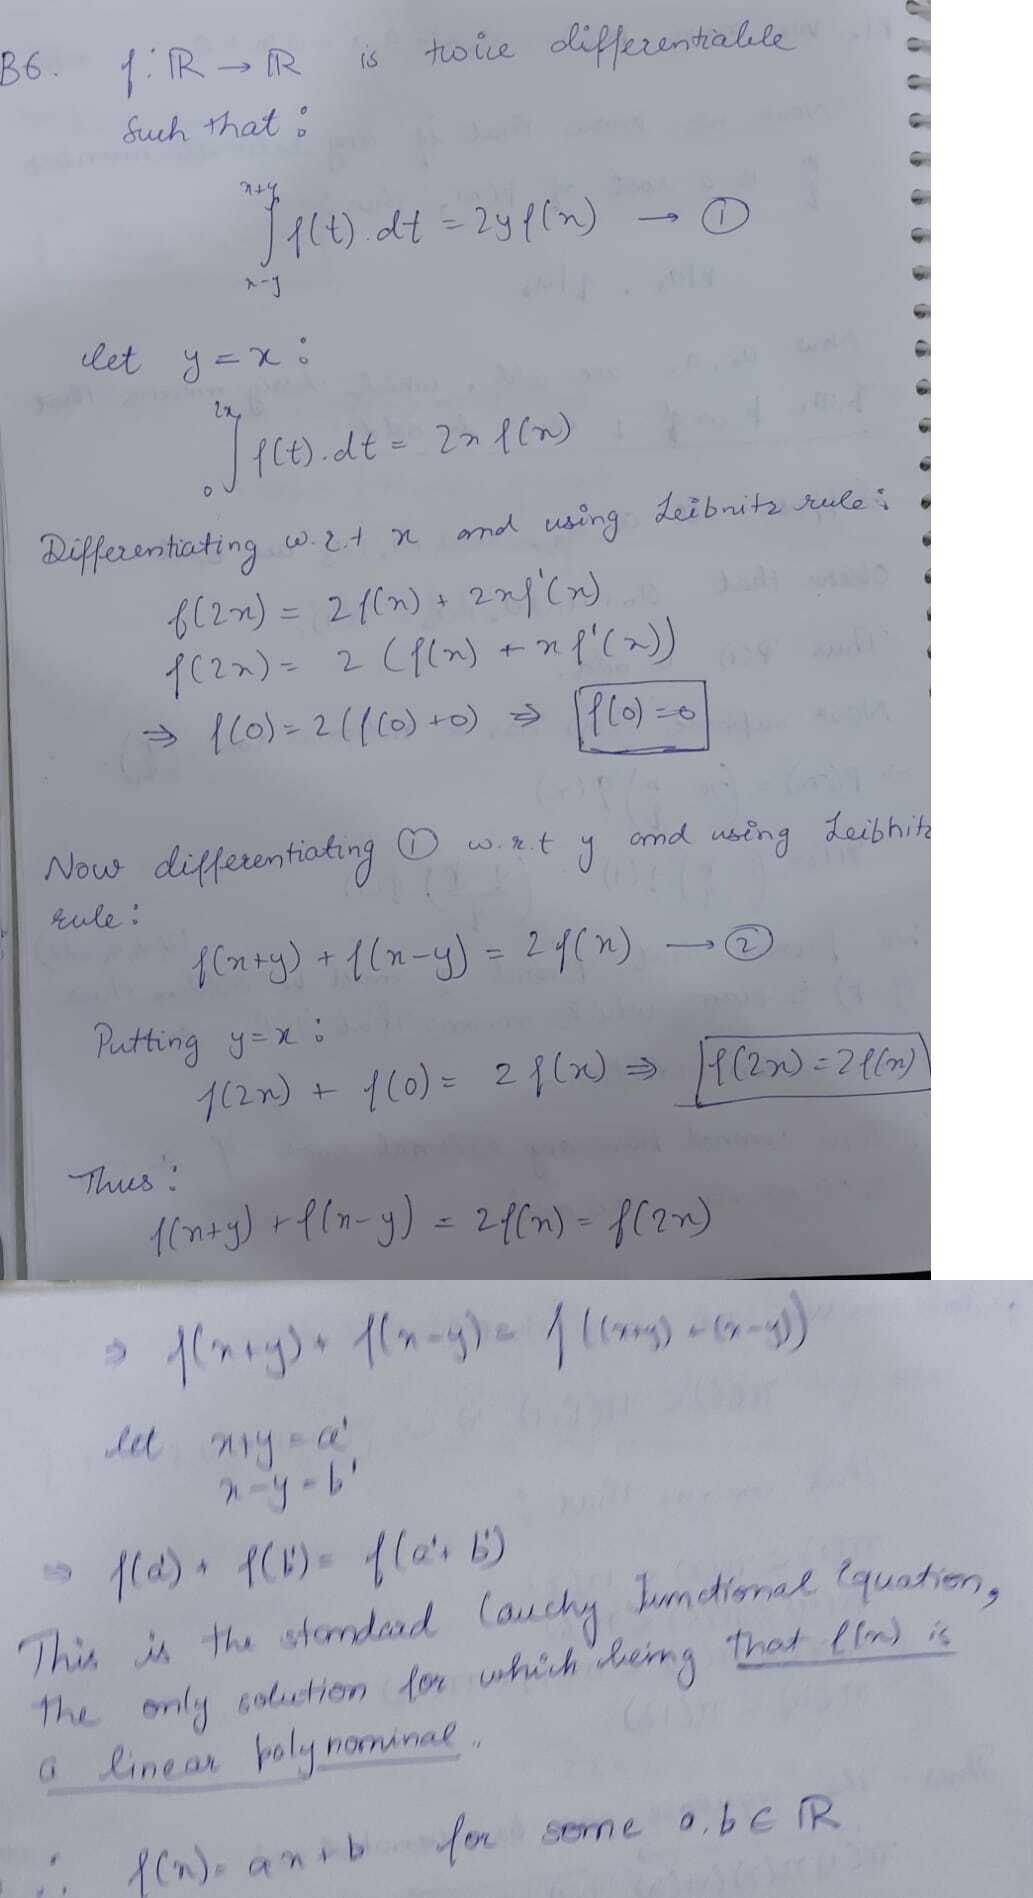 B6. f: ℝ → ℝ is twice differentiable
Such that :
∫_{x-y}^{x+y} f(t).dt = 2y f(x) → ①
let y = x :
∫_0^{2x} f(t).dt = 2x f(x)
Differentiating w.r.t x and using Leibnitz rule :
f(2x) = 2f(x) + 2xf'(x)
f(2x) = 2 (f(x) + x f'(x))
⇒ f(0) = 2(f(0) + 0) ⇒ f(0) = 0
Now differentiating ① w.r.t y and using Leibnitz
rule :
f(x+y) + f(x-y) = 2f(x) → ②
Putting y=x :
f(2x) + f(0) = 2f(x) ⇒ f(2x) = 2f(x)
Thus :
f(x+y) + f(x-y) = 2f(x) = f(2x)
⇒ f(x+y) + f(x-y) = f((x+y) + (x-y))
let x+y = a'
x-y = b'
⇒ f(a') + f(b') = f(a'+ b')
This is the standard Cauchy Functional Equation,
the only solution for which being that f(x) is
a linear polynominal.
∴ f(x) = ax + b for some a, b ∈ ℝ